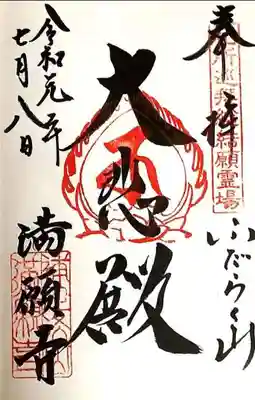 奉拝
結願霊場
ふだらく山
大悲殿
満願寺
令和元年
七月八日